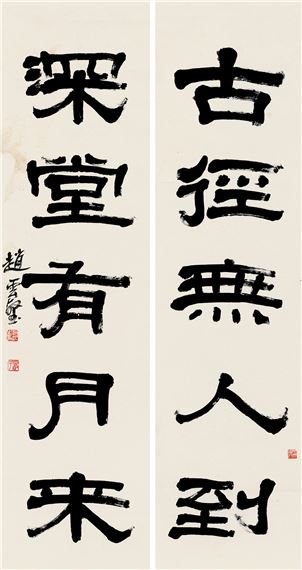 古徑無人到
深堂有月来
趙雲壑